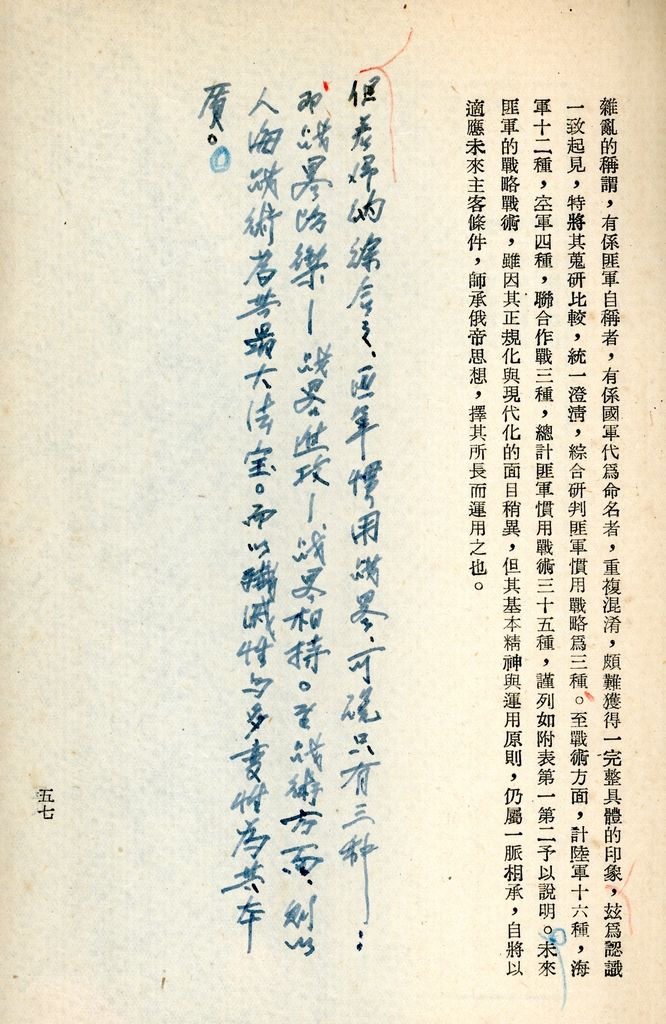 雜亂的稱謂，有係匪軍自稱者，有係國軍代爲命名者，重複混淆，頗難獲得一完整具體的印象，茲爲認識
一致起見，特將其蒐研比較，統一澄清，綜合研判匪軍慣用戰略爲三種。至戰術方面，計陸軍十六種，海
軍十二種，空軍四種，聯合作戰三種，總計匪軍慣用戰術三十五種，謹列如附表第一第二予以說明。未來
匪軍的戰略戰術，雖因其正規化與現代化的面目稍異，但其基本精神與運用原則，仍屬一脈相承，自將以
適應未來主客條件，師承俄帝思想，擇其所長而運用之也。
但 的綜合之、匪軍慣用战畧、可說只有三种：
即战畧防禦—战畧進攻—战畧相持。至战術方面、則以
人海战術為其最大法宝。而以殲滅性与多变性為其本
質。
五七